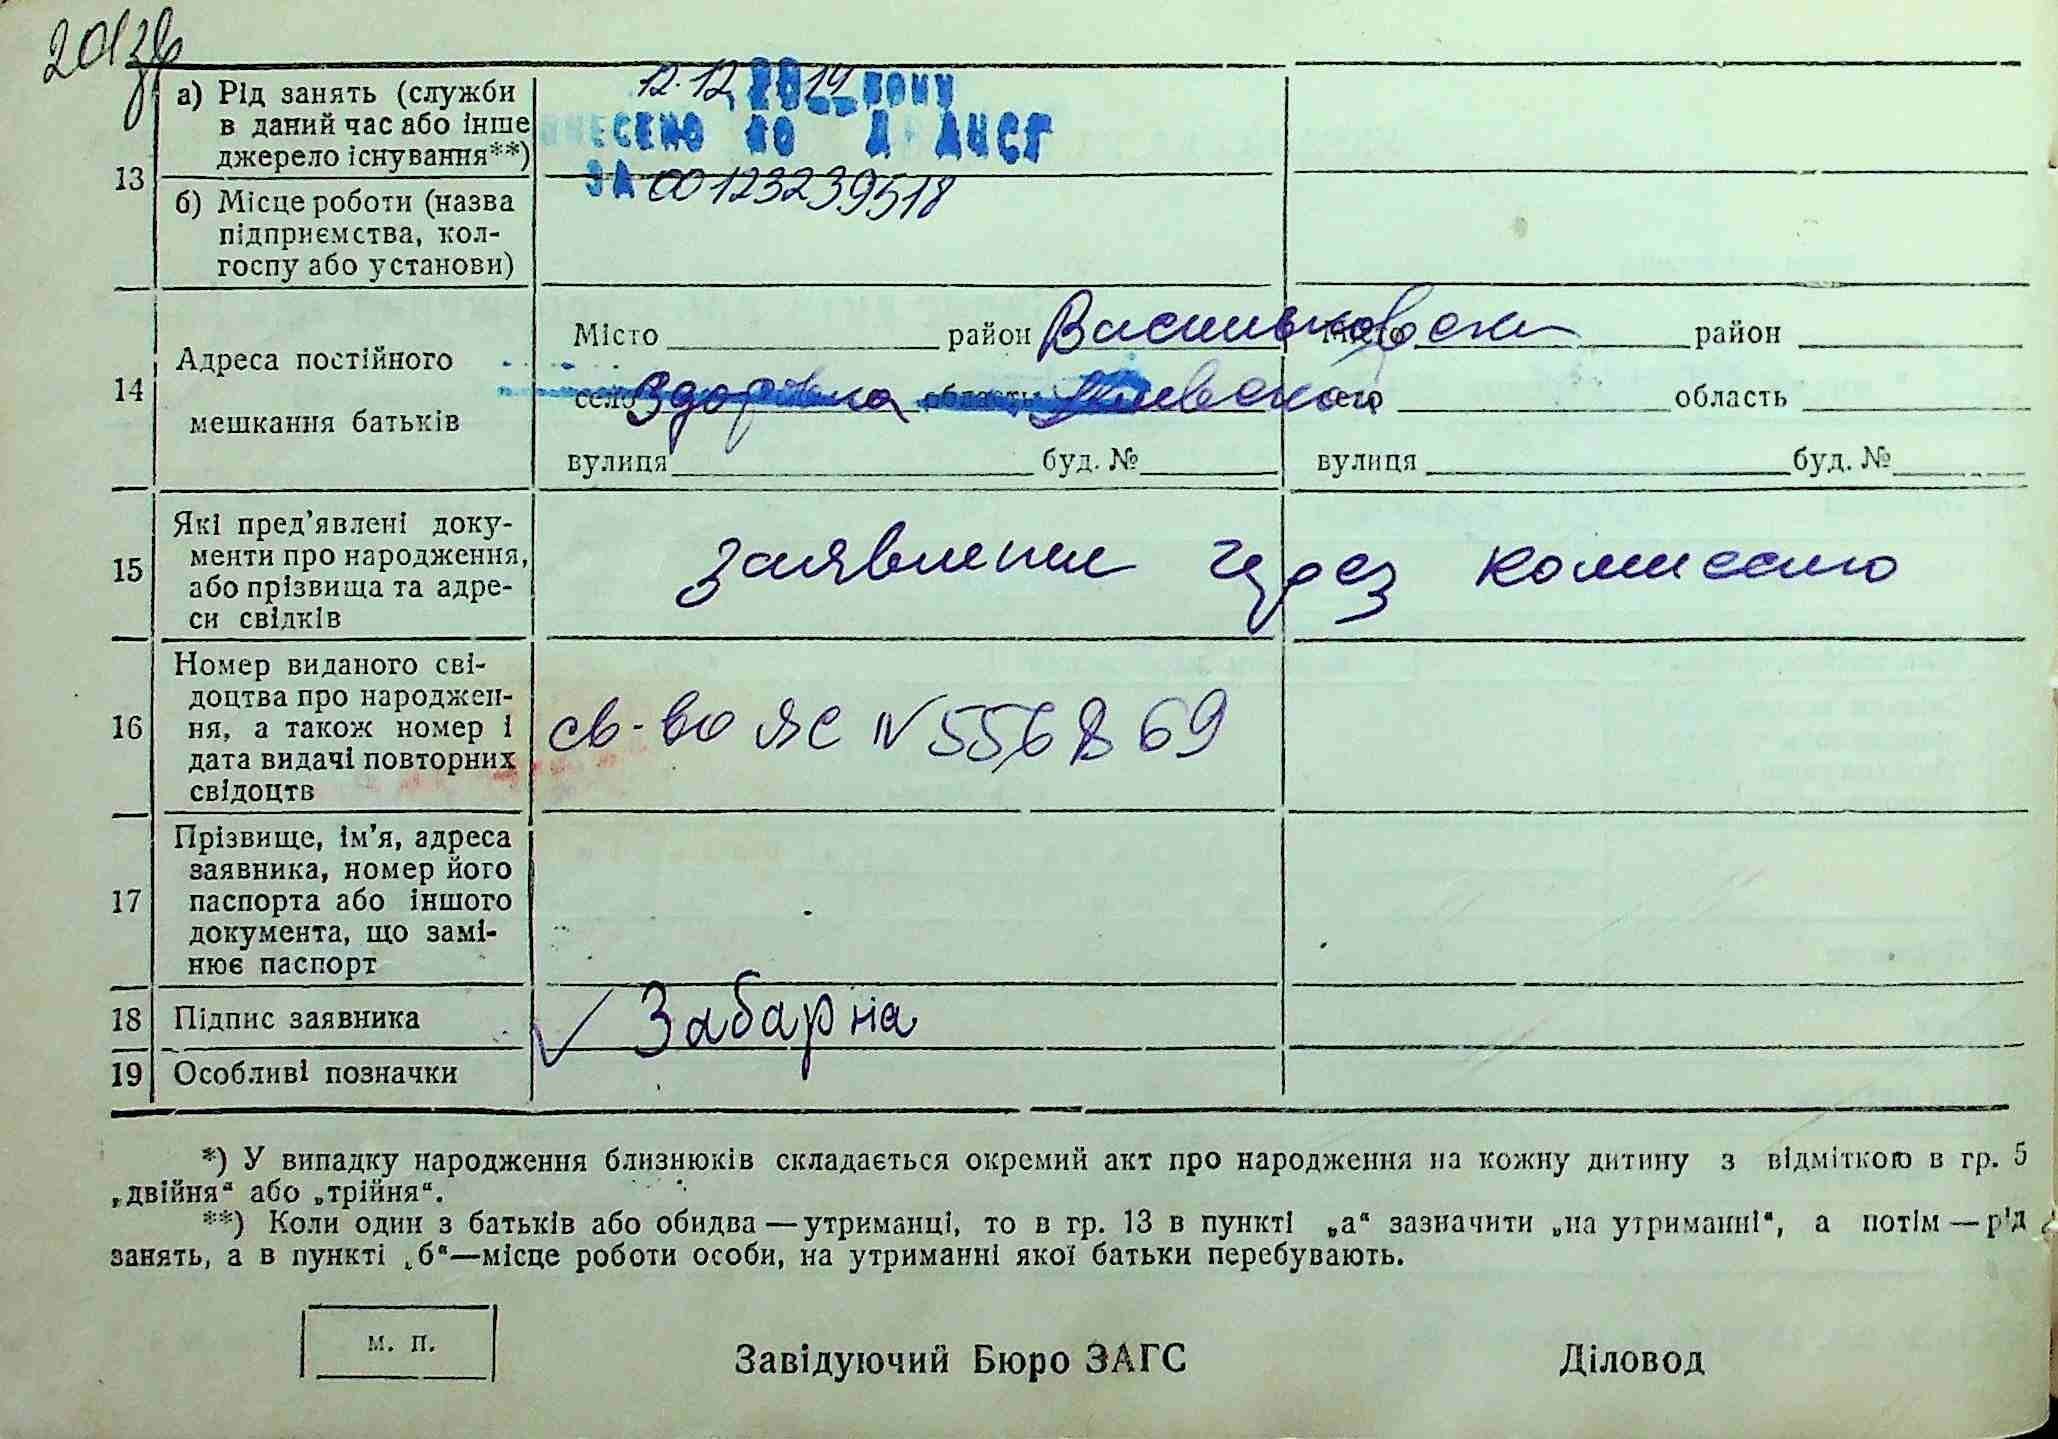 201зв
12.12.2014 року
ВНЕСЕНО ДО Д АЦСГ
ЗА 00123239518
13
а) Рід занять (служби
в даний час або інше
джерело існування**)
б) Місце роботи (назва
підприємства, кол-
госпу або установи)
14
Адреса постійного
мешкання батьків
Місто район Васильковски Місто район
село Здоровка область Киевской село область
вулиця буд. № вулиця буд. №
15
Які пред'явлені доку-
менти про народження,
або прізвища та адре-
си свідків
заявлении через комиссию
16
Номер виданого сві-
доцтва про народжен-
ня, а також номер і
дата видачі повторних
свідоцтв
св-во ЯС № 556869
17
Прізвище, ім'я, адреса
заявника, номер його
паспорта або іншого
документа, що замі-
нює паспорт
18 Підпис заявника Забарна
19 Особливі позначки
*) У випадку народження близнюків складається окремий акт про народження на кожну дитину з відміткою в гр. 5
„двійня“ або „трійня“.
**) Коли один з батьків або обидва — утриманці, то в гр. 13 в пункті „а“ зазначити „на утриманні“, а потім — рід
занять, а в пункті „б“—місце роботи особи, на утриманні якої батьки перебувають.
м. п.
Завідуючий Бюро ЗАГС Діловод